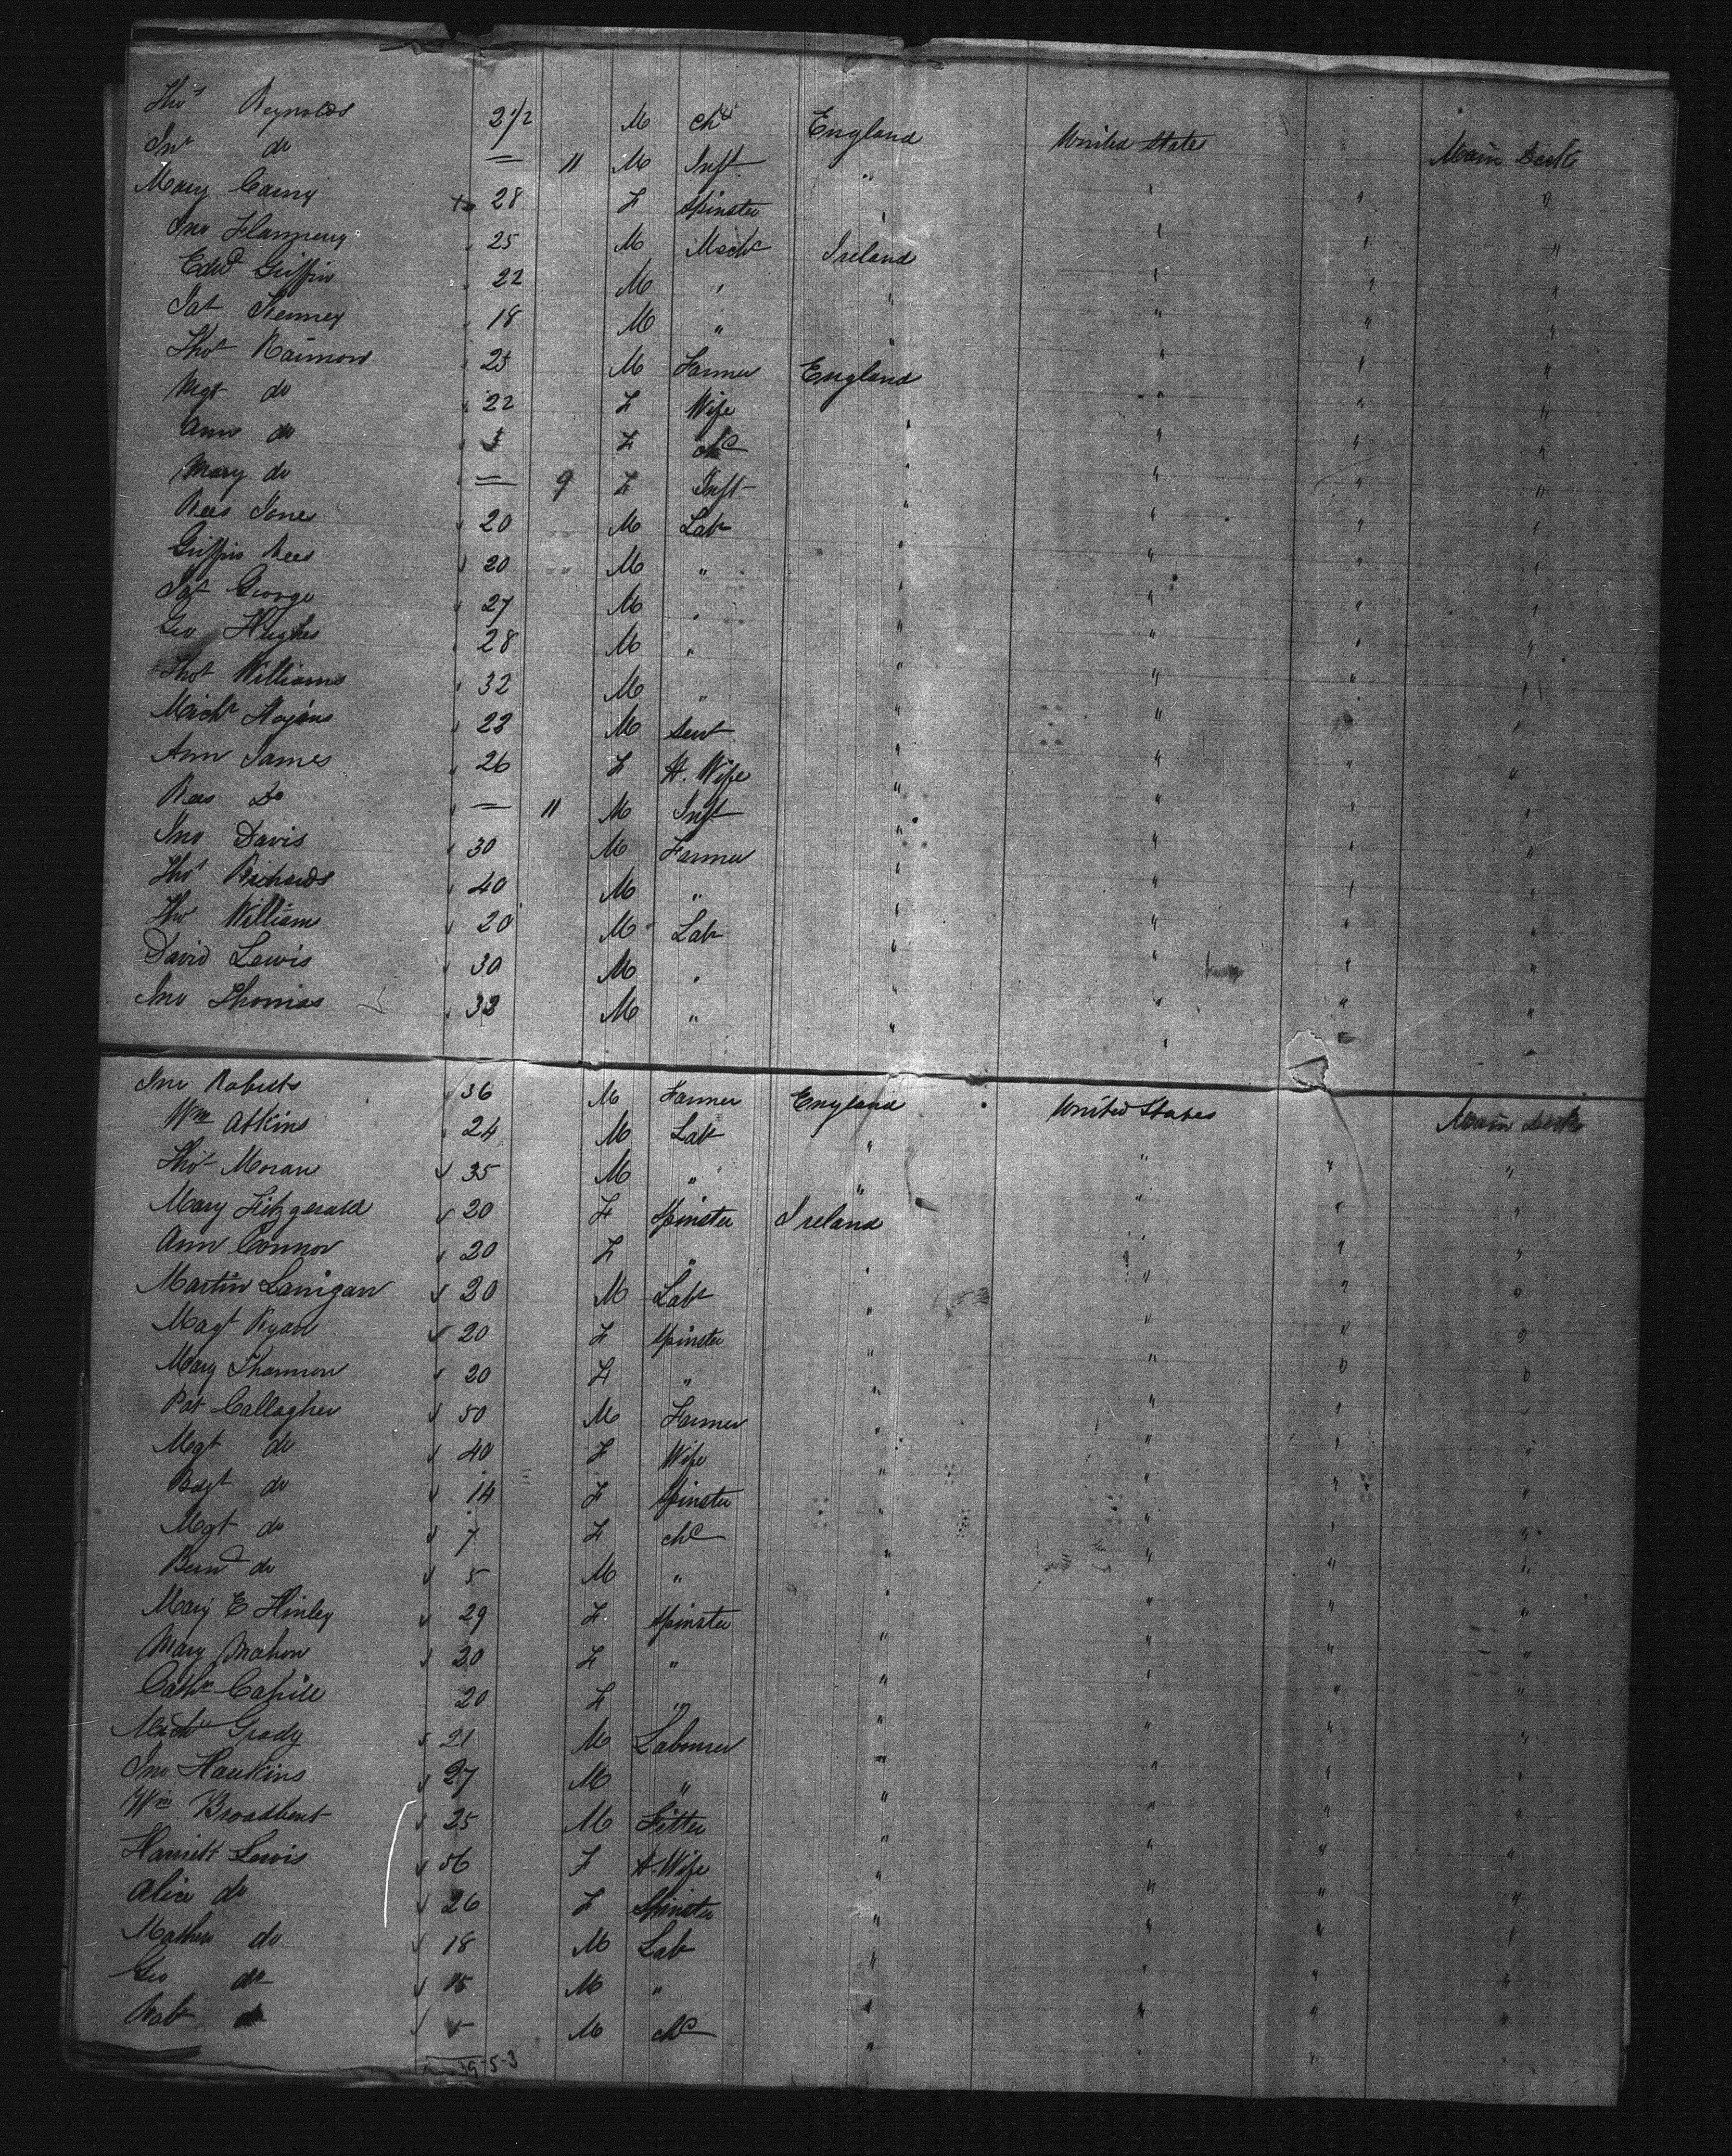 Thos Reynolds 2 1/2 M Chd England United States Main Deck
Jno do — 11 M Inft " " " "
Mary Carny 28 F Spinster " " " "
Jno Flannery 25 M Mechc Ireland " " "
Edwd Griffin 22 M " " " " "
Pat Kenney 18 M " " " " "
Thos 25 M Farmer England " " "
Mgt do 22 F Wife " " " "
Ann do F chd " " " "
Mary do — 9 F Inft " " " "
Rees Jones 20 M Labr " " " "
Griffin Rees 20 M " " " " "
Pat George 27 M " " " " "
Geo Hughes 28 M " " " " "
Thos Williams 32 M " " " " "
Michl 22 M Servt " " " "
Ann James 26 F H. Wife " " " "
Rees Do — 11 M Inft " " " "
Jno Davis 30 M Farmer " " " "
Thos Richards 40 M " " " " "
Thos William 20 M Labr " " " "
David Lewis 30 M " " " " "
Jno Thomas 33 M " " " " "
Jno Roberts 36 M Farmer England United States Main Deck
Wm Atkins 24 M Labr " " " "
Thos Moran 35 M " " " " "
Mary Fitzgerald 20 F Spinster Ireland " " "
Ann Connor 20 F " " " " "
Martin Lanigan 20 M Labr " " " "
Magt Ryan 20 F Spinster " " " "
Mary 20 F " " " " "
Pat Callagher 50 M Farmer " " " "
Mgt do 40 F Wife " " " "
Bdgt do 14 F Spinster " " " "
Mgt do 7 F chd " " " "
Bernd do 5 M " " " " "
Mary E Hinley 29 F Spinster " " " "
Mary Mahon 20 F " " " " "
Cathn Cahill 20 F " " " " "
Michl Grady 21 M Labourer " " " "
Jno Hawkins 27 M " " " " "
Wm Broadbent 25 M Fitter " " " "
Harriett Lewis 56 F H. Wife " " " "
Alice do 26 F Spinster " " " "
Mathew do 18 M Labr " " " "
Geo do 15 M " " " " "
Robt do M chd " " " "
19-5-3